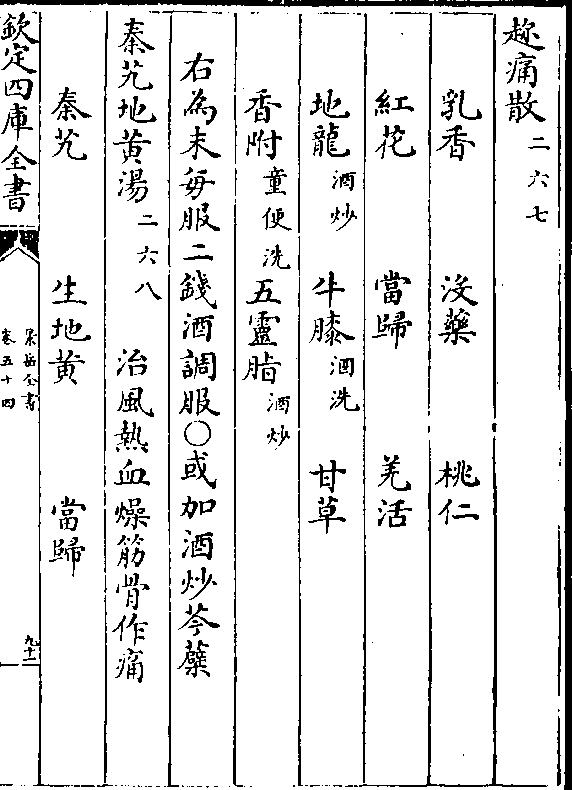 趂痛散二六七
乳香　沒藥　桃仁
紅花　當歸　羌活
地龍酒炒　牛膝酒洗　甘草
香附童便洗　五靈脂酒炒
右為末每服二錢酒調服〇或加酒炒芩蘗
秦艽地黄湯二六八　治風熱血燥筋骨作痛
秦艽　生地黄　當歸
欽定四庫全書　景岳全書卷五十四　九十二